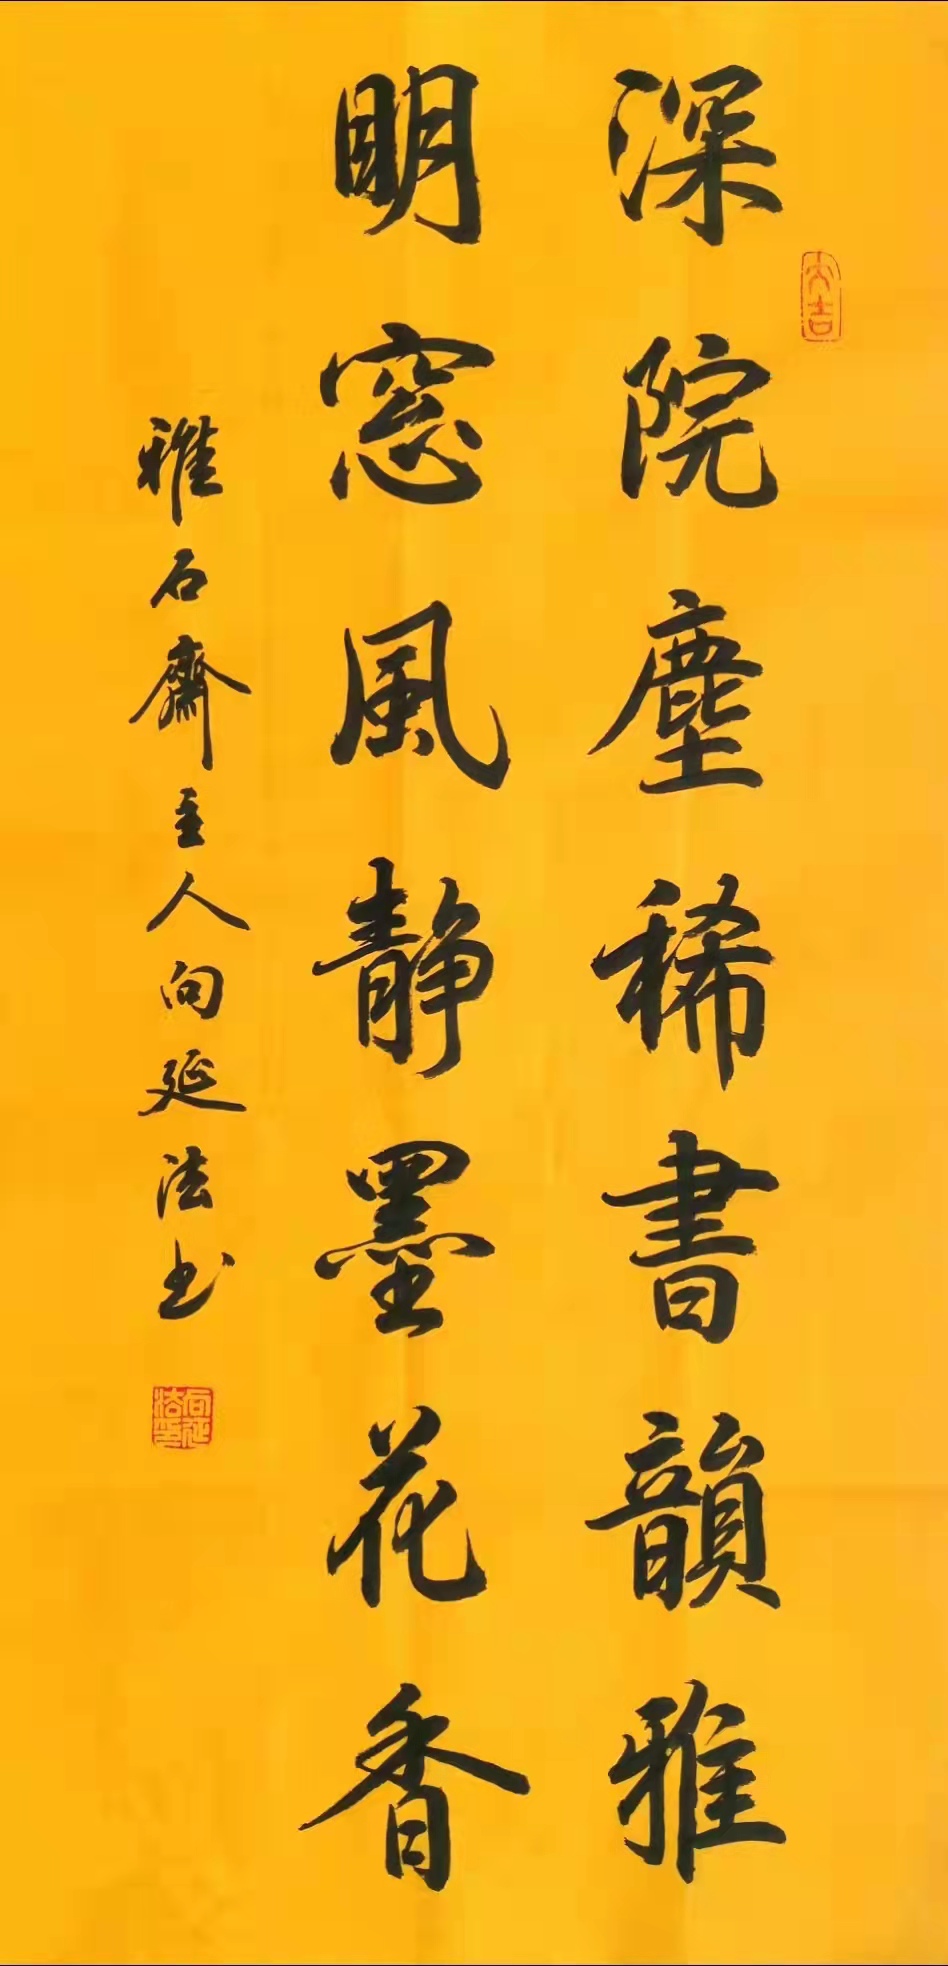 深院塵稀書韻雅
明窓風靜墨花香
雅石齋主人向延法书
大吉
向延法印